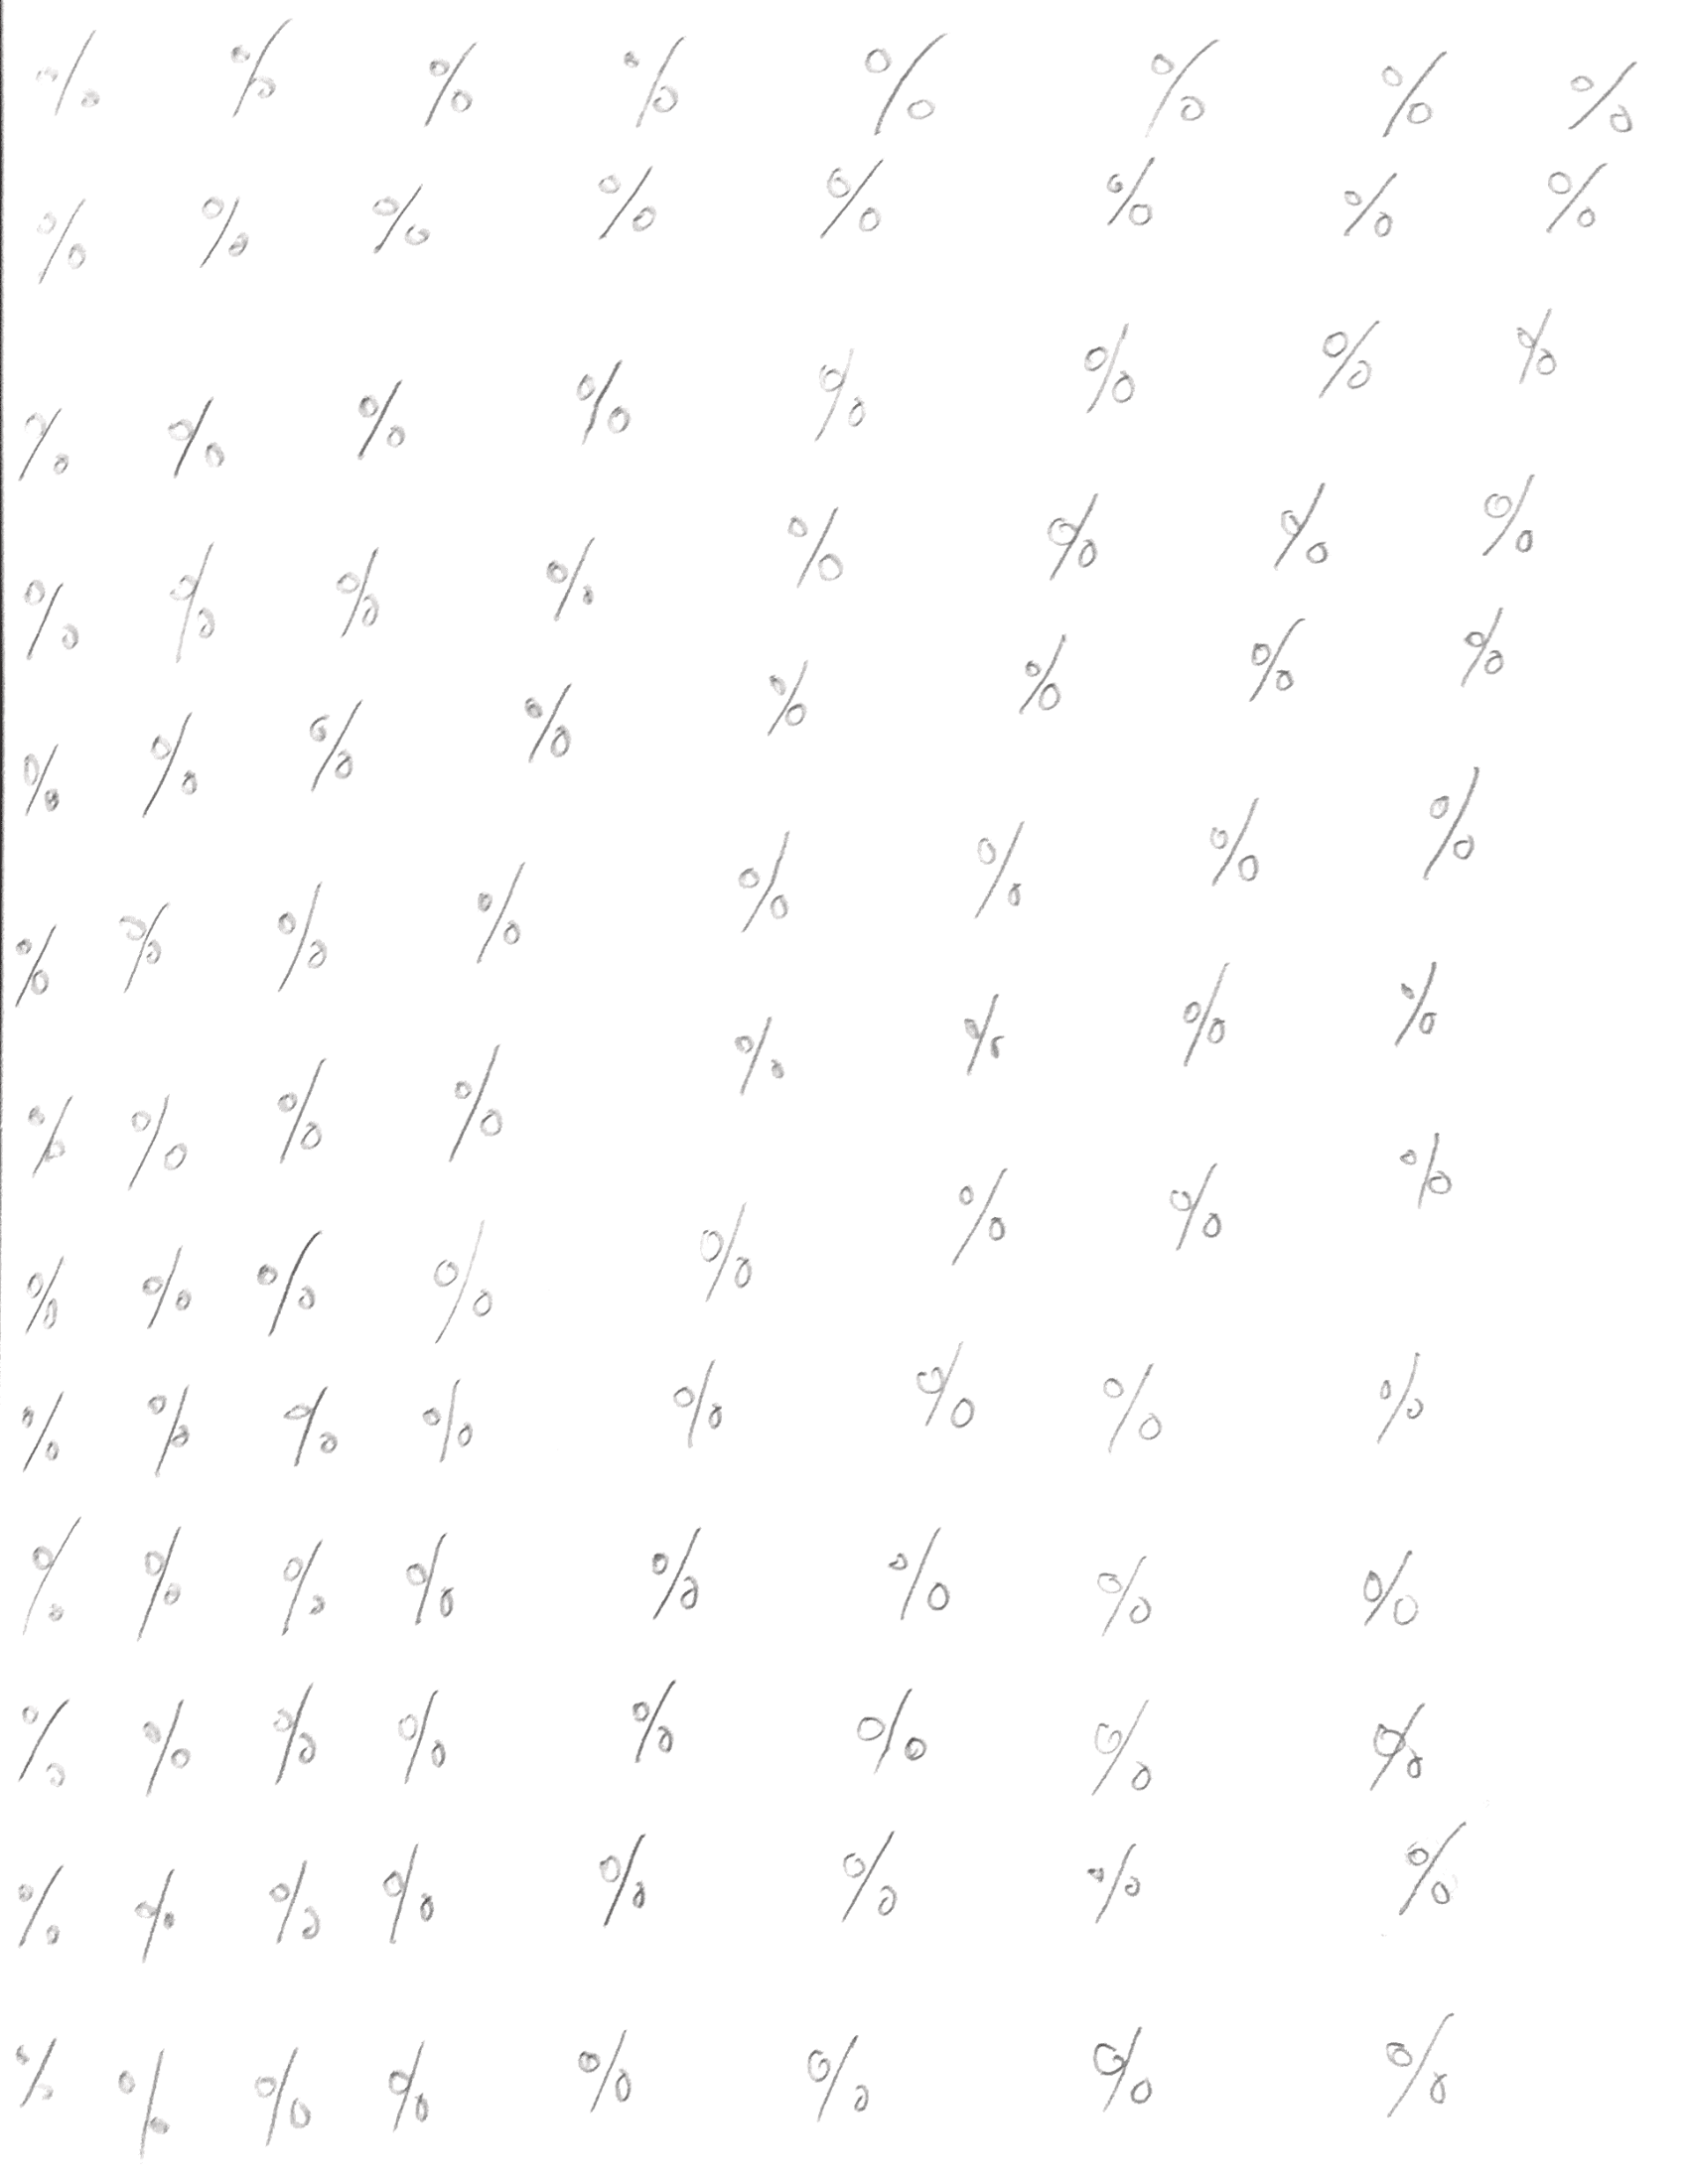 % % % % % % % %
% % % % % % % %
% % % % % % % %
% % % % % % % %
% % % % % % % %
% % % % % % % %
% % % % % % % %
% % % % % % % %
% % % % % % % %
% % % % % % % %
% % % % % % % %
% % % % % % % %
% % % % % % % %